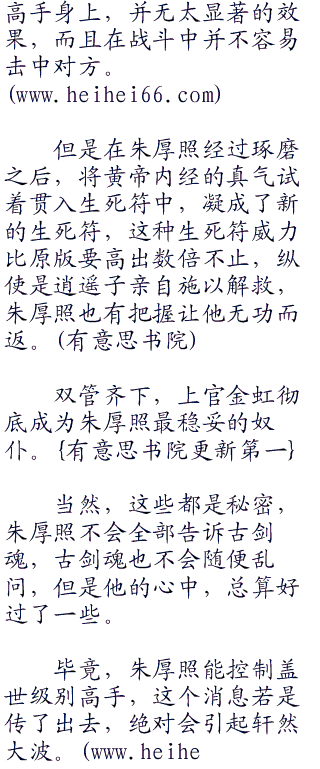 高手身上，并无太显著的效
果，而且在战斗中并不容易
击中对方。
(www.heihei66.com)
但是在朱厚照经过琢磨
之后，将黄帝内经的真气试
着贯入生死符中，凝成了新
的生死符，这种生死符威力
比原版要高出数倍不止，纵
使是逍遥子亲自施以解救，
朱厚照也有把握让他无功而
返。(有意思书院)
双管齐下，上官金虹彻
底成为朱厚照最稳妥的奴
仆。{有意思书院更新第一}
当然，这些都是秘密，
朱厚照不会全部告诉古剑
魂，古剑魂也不会随便乱
问，但是他的心中，总算好
过了一些。
毕竟，朱厚照能控制盖
世级别高手，这个消息若是
传了出去，绝对会引起轩然
大波。(www.heihe